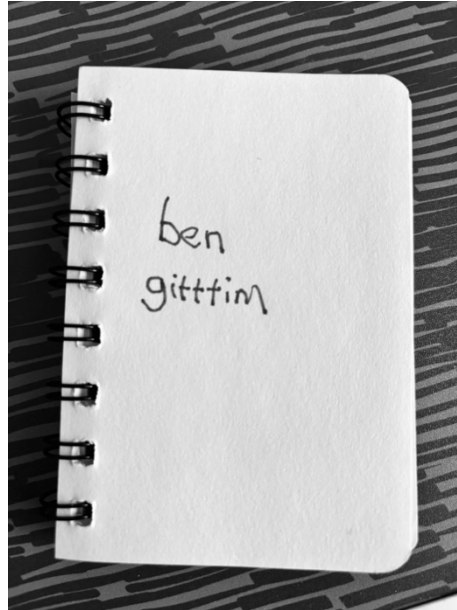 ben
gitttim